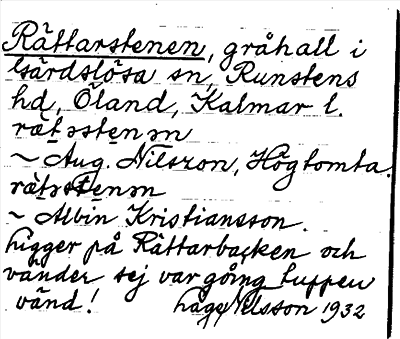 Rättarstenen, gråhall i
Gärdslösa sn, Runstens
hd, Öland, Kalmar l.
rætəstenəm
~ Aug. Nilsson, Högtomta.
rætəstenəm
~ Albin Kristiansson.
Ligger på Rättarbacken och
vänder sej var gång tuppen
vänd! Håge Nilsson 1932